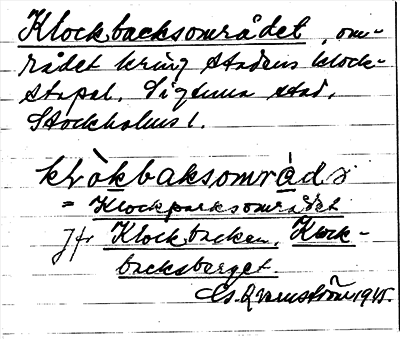 Klockbacksområdet, om-
rådet kring stadens klock-
stapel. Sigtuna stad,
Stockholms l.
klòkbaksområdə
= Klockparksområdet
Jfr Klockbacken, Klock-
backsberget.
Qvarnström 1915.